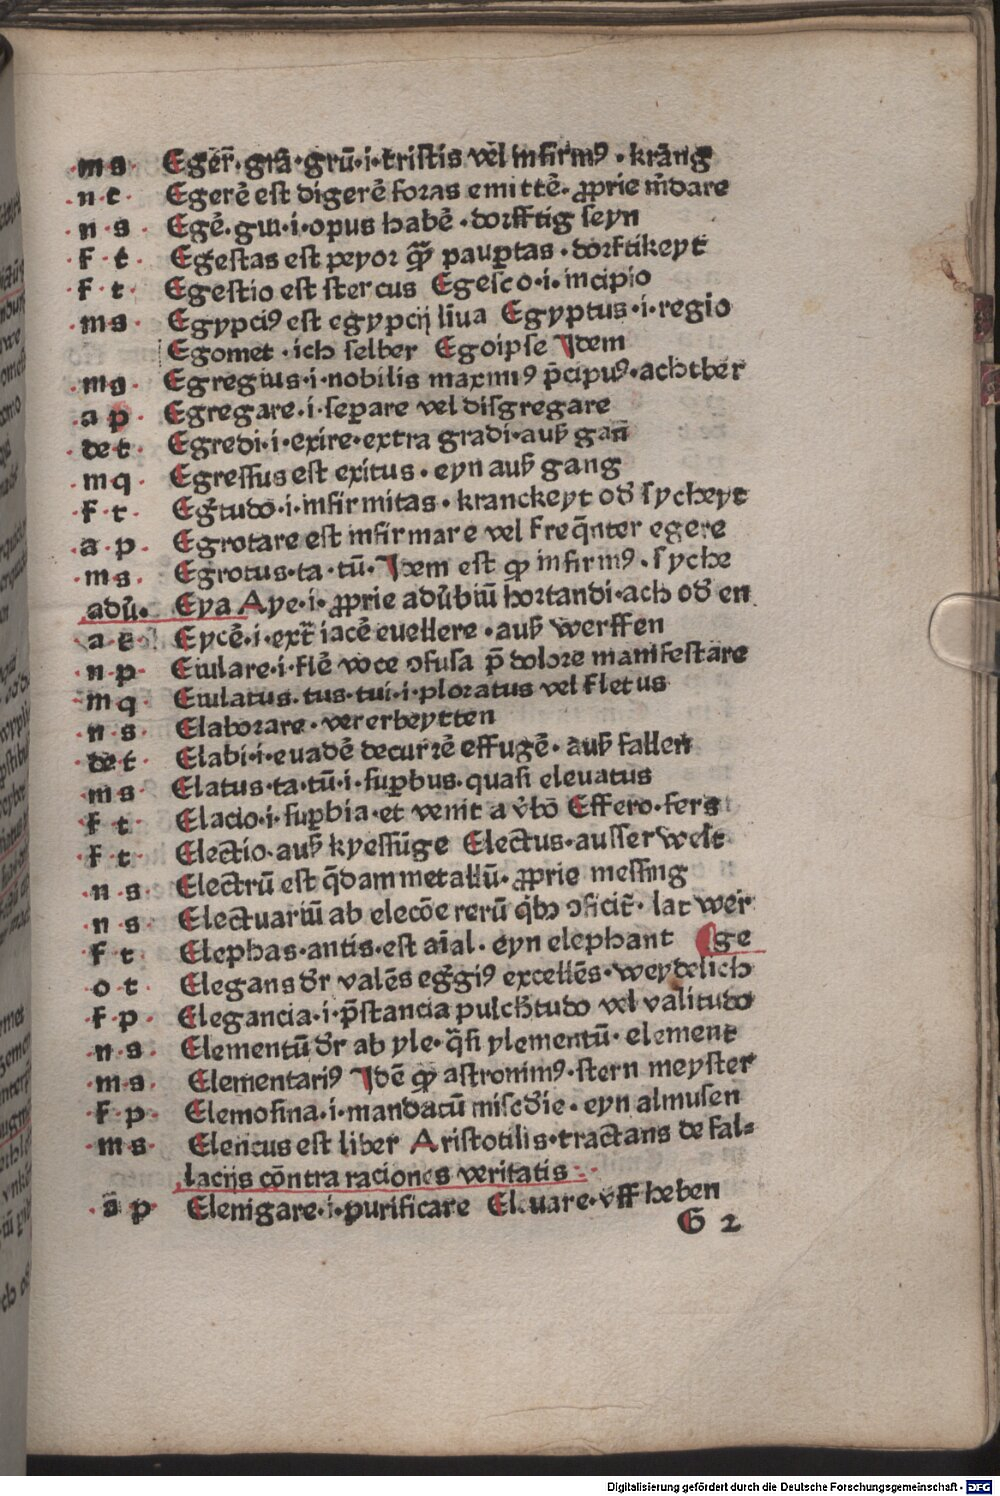 ·m s· Eger̄·gra̅·gru̅·i·tristis vel infirmꝰ·kra̅ng
·n t· Egere̅ est digere̅ foras emitte̅·ꝓprie m̅dare
·n s· Ege̅·gui·i·opus habe̅·dorfftig seyn
·f t· Egestas est peyor qͣ̅ pauꝑtas·dorftikeyt
·f t· Egestio est stercus Egesco·i·incipio
·m s· Egypciꝰ est egypcij liua Egyptus·i·regio
Egomet·ich selber Egoipse Idem
·m s· Egregius·i·nobilis maximꝰ p̅cipuꝰ·achtber
·a p· Egregare·i·seꝑare vel disgregare
·de t· Egredi·i·exire·extra gradi·auß gan̅
·m q· Egressus est exitus·eyn auß gang
·f t· Eg̅tudo·i·infirmitas·kranckeyt od̅ sycheyt
·a p· Egrotare est infirmare vel freq̅nter egere
·m s· Egrotus·ta·tu̅·Idem est qͦ infirmꝰ·syche
adu̅· Eya Aye·i·ꝓprie adu̅biu̅ hortandi·ach od̅ en
·a t· Eyce̅·i·ext̅ iace̅ euellere·auß werffen
·n p· Eiulare·i·fle̅ voce ꝯfusa p̅ dolore manifestare
·m q· Eiulatus·tus·tui·i·ploratus vel fletus
·n s· Elaborare·vererbeytten
·de t· Elabi·i·euade̅ decurre̅ effuge̅·auß fallen
·m s· Elatus·ta·tu̅·i·suꝑbus·quasi eleuatus
·f t· Elacio·i·suꝑbia·et venit a v̅bo̅ Effero·fers
·f t· Electio·auß kyessu̅ge Electus·ausserwelt
·n s· Electru̅ est q̅dam metallu̅·ꝓprie messing
·n s· Electuariu̅ ab eleco̅e reru̅ q̅bꝫ ꝯficit̅·lat wer
·f t· Elephas·antis·est ai̅al·eyn elephant ge
·o t· Elegans d̅r vale̅s eg̅giꝰ excelle̅s·weydelich
·f p· Elegancia·i·p̅stancia pulch̅tudo vel valitudo
·n s· Elementu̅ d̅r ab yle·q̅si ylementu̅·element
·m s· Elementariꝰ Ide̅ qͦ astronimꝰ·stern meyster
·f p· Elemosina·i·mandatu̅ misc̅die·eyn almusen
·m s· Elencus est liber Aristotilis·tractans de fal⸗
lacijs co̅ntra raciones veritatis·
·a p· Elenigare·i·purificare Eleuare·vff heben
G 2
Digitalisierung gefördert durch die Deutsche Forschungsgemeinschaft - DFG